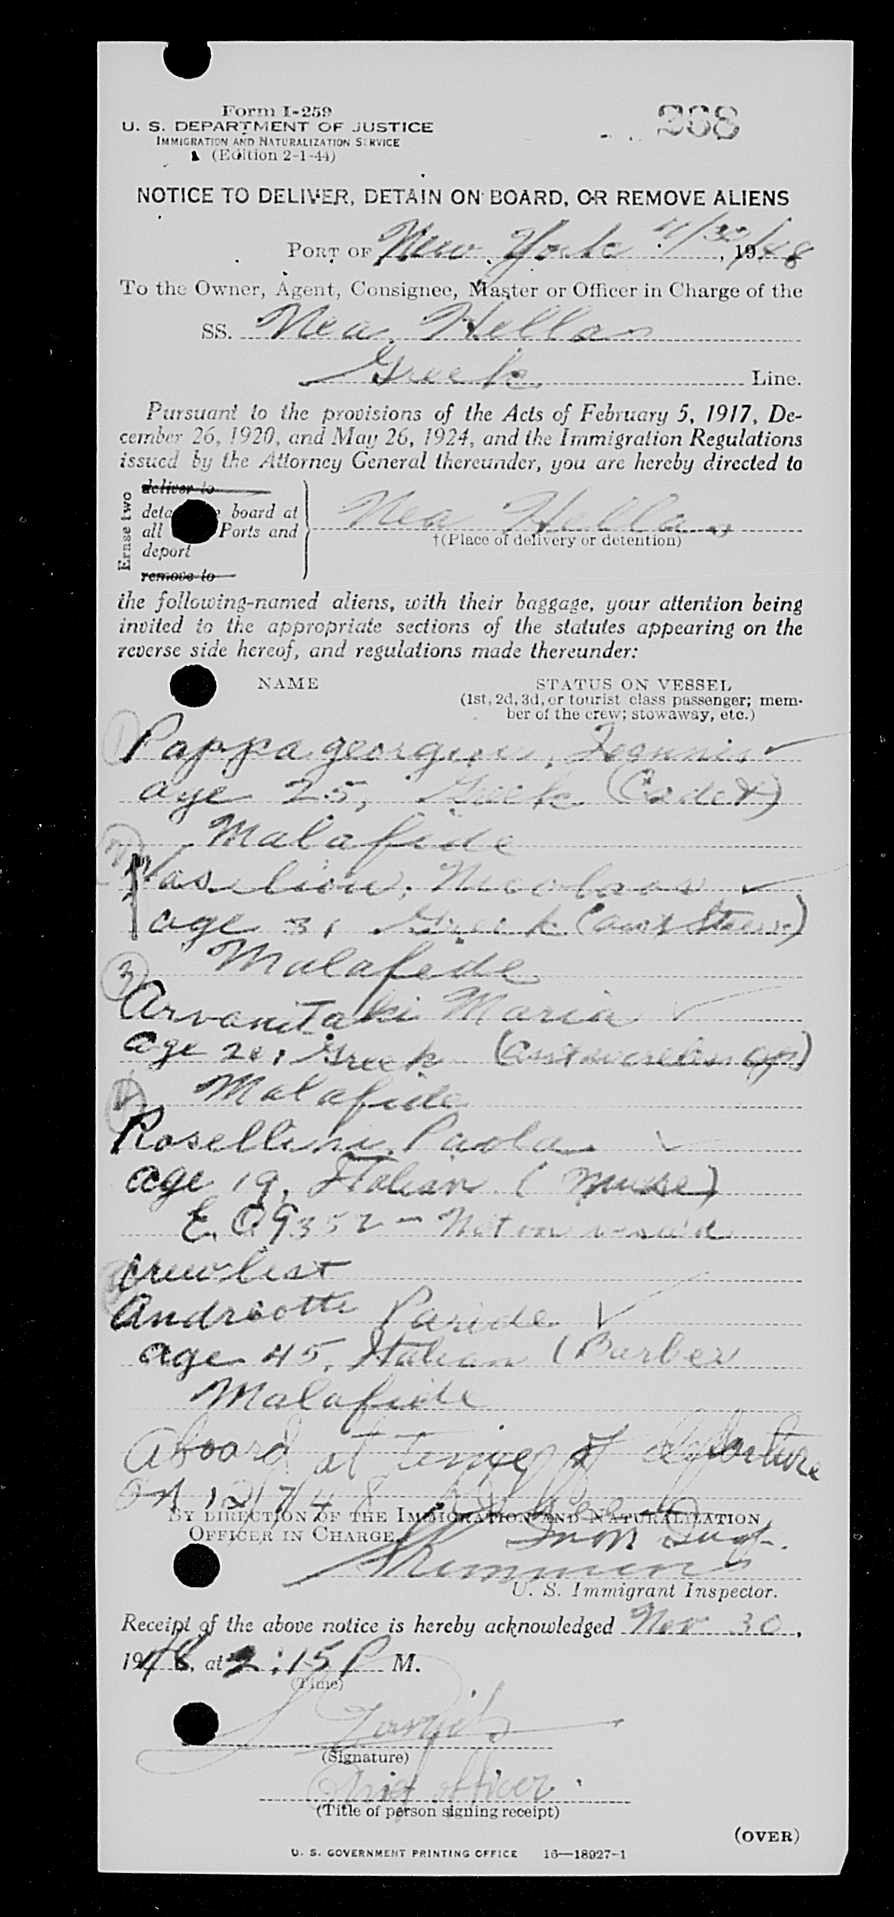 Form I-259
U. S. DEPARTMENT OF JUSTICE
IMMIGRATION AND NATURALIZATION SERVICE
(Edition 2-1-44)
268
NOTICE TO DELIVER, DETAIN ON BOARD, OR REMOVE ALIENS
PORT OF New York 11/30/, 1948
To the Owner, Agent, Consignee, Master or Officer in Charge of the
SS. Nea Hellas
Greek Line.
Pursuant to the provisions of the Acts of February 5, 1917, De-
cember 26, 1920, and May 26, 1924, and the Immigration Regulations
issued by the Attorney General thereunder, you are hereby directed to
Erase two
deliver to
board at
all Ports and
deport
remove to
Nea Hellas
†(Place of delivery or detention)
the following-named aliens, with their baggage, your attention being
invited to the appropriate sections of the statutes appearing on the
reverse side hereof, and regulations made thereunder:
NAME
STATUS ON VESSEL
(1st, 2d, 3d, or tourist class passenger; mem-
ber of the crew; stowaway, etc.)
1 Pappageorgiou, Ioannis ✓
age 25, Greek (Cadet)
Malafide
2 Vasiliou, Nicolaos ✓
age 31 Greek (asst Stew)
Malafide
3
Arvanitaki Maria ✓
age 20, Greek
Malafide
4
Rosellini, Paola ✓
age 19, Italian (Nurse)
E.O 9352 - Not on visa'd
crewlist
Andreotti Paride ✓
age 45, Italian (Barber
Malafide
Aboard at time of departure
on 12/7/48
BY DIRECTION OF THE IMMIGRATION AND NATURALIZATION
OFFICER IN CHARGE.
Imm Insp.
U. S. Immigrant Inspector.
Receipt of the above notice is hereby acknowledged Nov 30,
1948, at 2:15 P M.
(Time)
(Signature)
Chief officer.
(Title of person signing receipt)
(OVER)
U. S. GOVERNMENT PRINTING OFFICE 16—18927-1